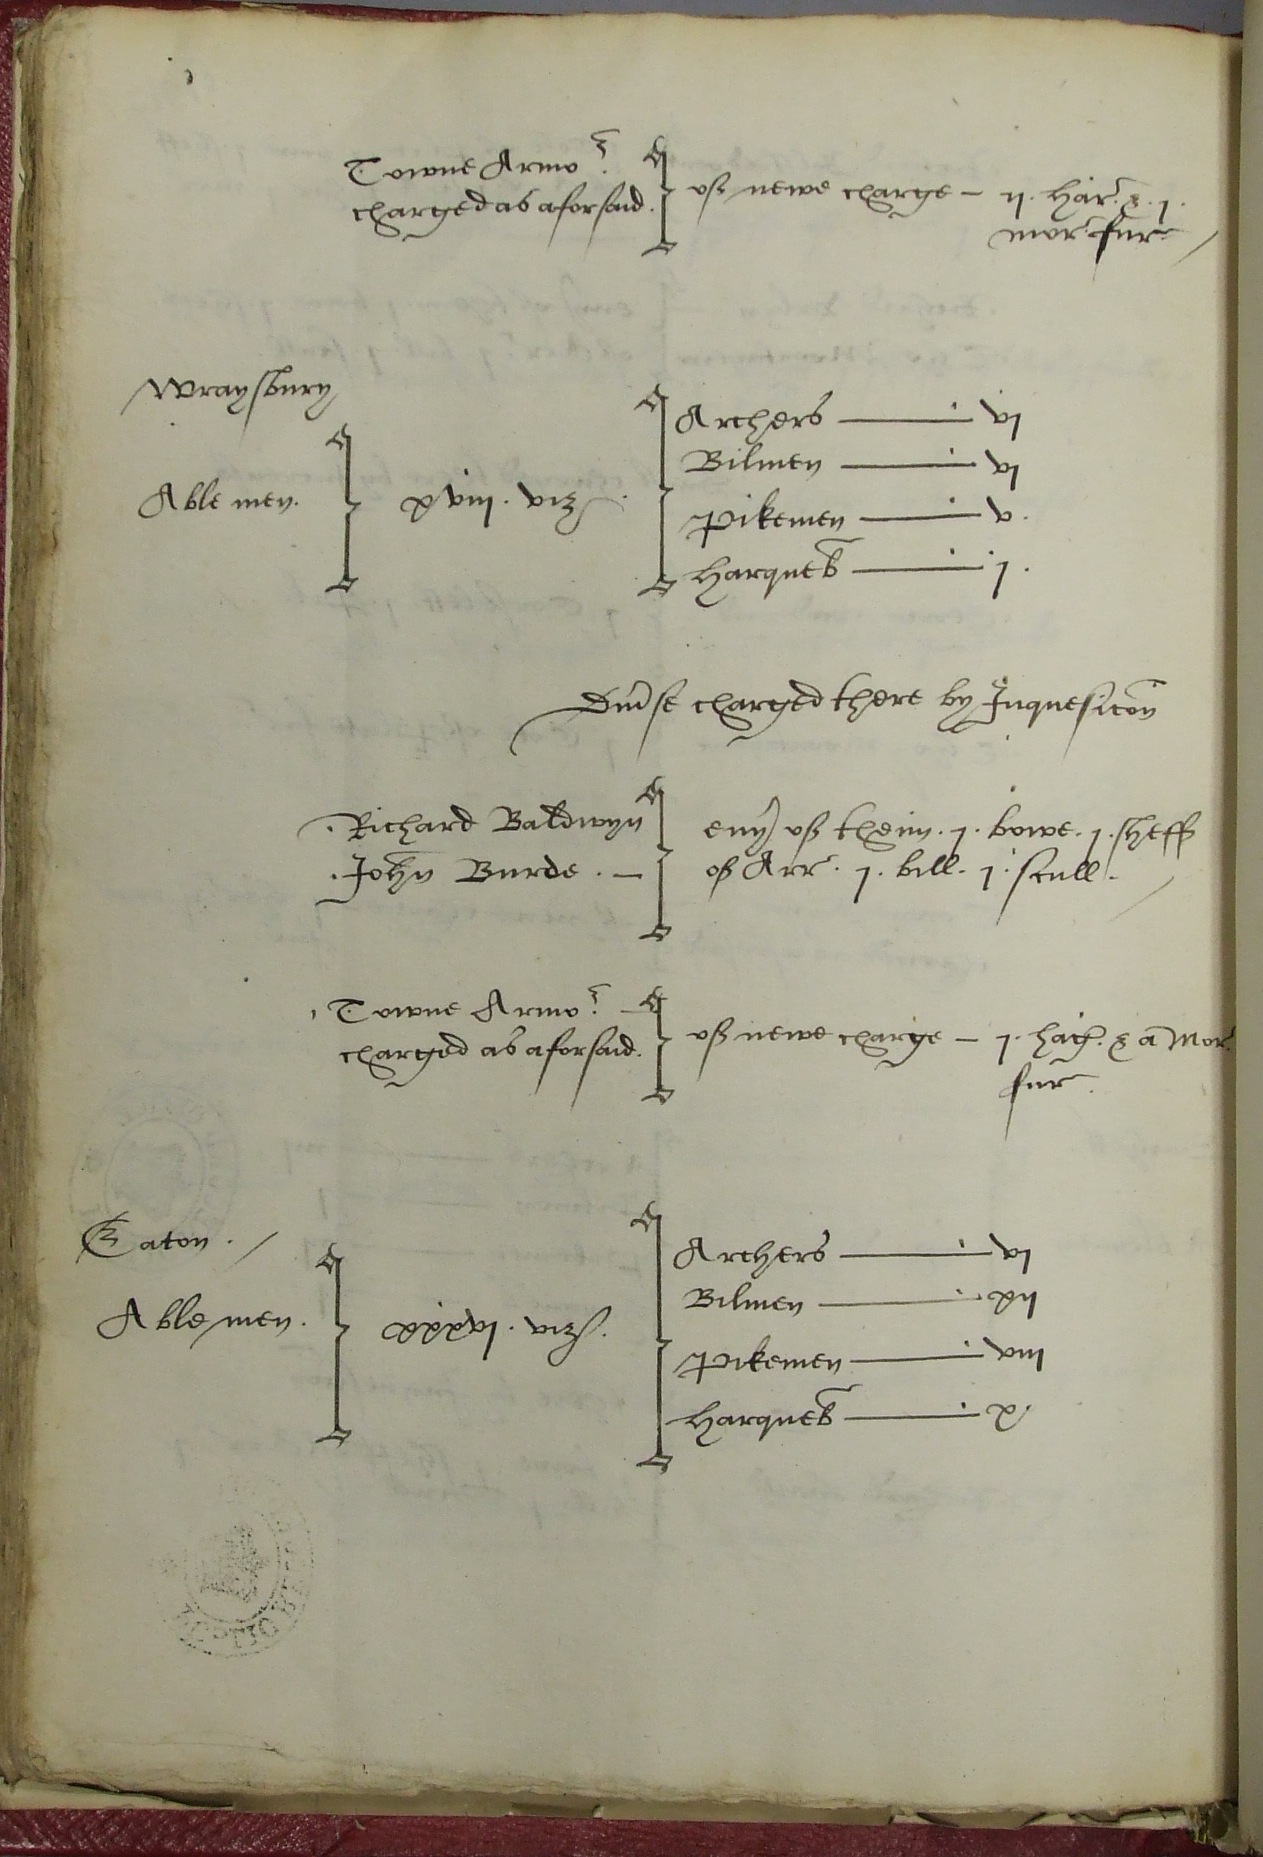 Towne Armor
charged as aforsaid.
of newe charge – ij. har. & .j.
mor. fur.
Wraysbury
Able men.
xviij. viz
Archers vj
Bilmen vj
Pikemen v.
Harqueb j.
Diuerse charged there by Inquesicon
Richard Baldwyn
John Burde. –
euery of theim. j. bowe. j. sheff
of Arr. j. bill. j. scull.
Towne Armor –
charged as aforsaid.
of newe charge – j. harq. & a Mor.
fur.
Eaton.
Able men.
xxxvj. viz.
Archers vj
Bilmen xij
Pikemen viij
Harqueb x